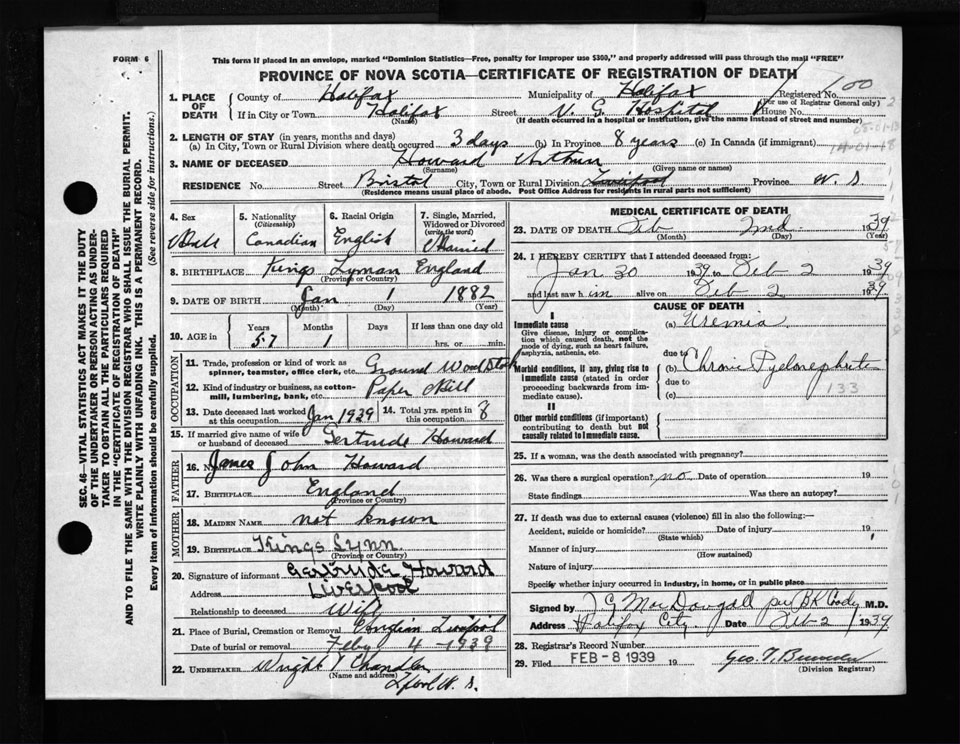 FORM 6
This form if placed in an envelope, marked "Dominion Statistics—Free, penalty for improper use $300," and properly addressed will pass through the mail "FREE"
PROVINCE OF NOVA SCOTIA—CERTIFICATE OF REGISTRATION OF DEATH
1. PLACE OF DEATH County of Halifax Municipality of Halifax Registered No. 100
(For use of Registrar General only)
If in City or Town Halifax Street V. G. Hospital House No.
(Name) (If death occurred in a hospital or institution, give the name instead of street and number)
2. LENGTH OF STAY (in years, months and days)
(a) In City, Town or Rural Division where death occurred 3 days (b) In Province 8 years (c) In Canada (if immigrant)
3. NAME OF DECEASED Howard Arthur
(Surname) (Given name or names)
RESIDENCE No. Street Bristol City, Town or Rural Division Province N. S
(Residence means usual place of abode. Post Office Address for residents in rural parts not sufficient)
4. Sex Male
5. Nationality (Citizenship) Canadian
6. Racial Origin English
7. Single, Married, Widowed or Divorced (write the word) Married
8. BIRTHPLACE Kings Lyman England
(Province or Country)
9. DATE OF BIRTH Jan 1 1882
(Month) (Day) (Year)
10. AGE in Years Months Days If less than one day old
57 1 hrs. or min.
OCCUPATION
11. Trade, profession or kind of work as spinner, teamster, office clerk, etc. Ground Wood
12. Kind of industry or business, as cotton-mill, lumbering, bank, etc. Paper Mill
13. Date deceased last worked at this occupation Jan 1939 14. Total yrs. spent in this occupation 8
15. If married give name of wife or husband of deceased Gertrude Howard
FATHER
16. James John Howard
17. BIRTHPLACE England
(Province or Country)
MOTHER
18. MAIDEN NAME not known
19. BIRTHPLACE Kings Lynn.
(Province or Country)
20. Signature of informant Gertrude Howard
Address Liverpool
Relationship to deceased Wife
21. Place of Burial, Cremation or Removal Liverpool
Date of burial or removal Feby 4 1939
22. UNDERTAKER Wright T Chandler
(Name and address)
Lpool N. S.
MEDICAL CERTIFICATE OF DEATH
23. DATE OF DEATH Feb 2nd 1939
(Month) (Day) (Year)
24. I HEREBY CERTIFY that I attended deceased from:
Jan 30 1939 to Feb 2 1939
and last saw him alive on Feb 2 1939.
CAUSE OF DEATH
I
Immediate cause (a) Uremia
Give disease, injury or complication which caused death, not the mode of dying, such as heart failure, asphyxia, asthenia, etc.
due to
Morbid conditions, if any, giving rise to immediate cause (stated in order proceeding backwards from immediate cause). (b) Chronic Pyelonephritis
due to 133
(c)
II
Other morbid conditions (if important) contributing to death but not causally related to immediate cause.
25. If a woman, was the death associated with pregnancy?
26. Was there a surgical operation? no Date of operation 19
State findings Was there an autopsy?
27. If death was due to external causes (violence) fill in also the following:—
Accident, suicide or homicide? Date of injury 19
(State which)
Manner of injury
(How sustained)
Nature of injury
Specify whether injury occurred in industry, in home, or in public place
Signed by J G MacDougall per BK Cody M.D.
Address Halifax City Date Feb 2 1939
28. Registrar's Record Number
29. Filed FEB - 8 1939 19
(Division Registrar)
SEC. 46—VITAL STATISTICS ACT MAKES IT THE DUTY
OF THE UNDERTAKER OR PERSON ACTING AS UNDERTAKER TO OBTAIN ALL THE PARTICULARS REQUIRED
IN THE "CERTIFICATE OF REGISTRATION OF DEATH"
AND TO FILE THE SAME WITH THE DIVISION REGISTRAR WHO SHALL ISSUE THE BURIAL PERMIT.
WRITE PLAINLY WITH UNFADING INK. THIS IS A PERMANENT RECORD.
Every item of information should be carefully supplied. (See reverse side for instructions.)